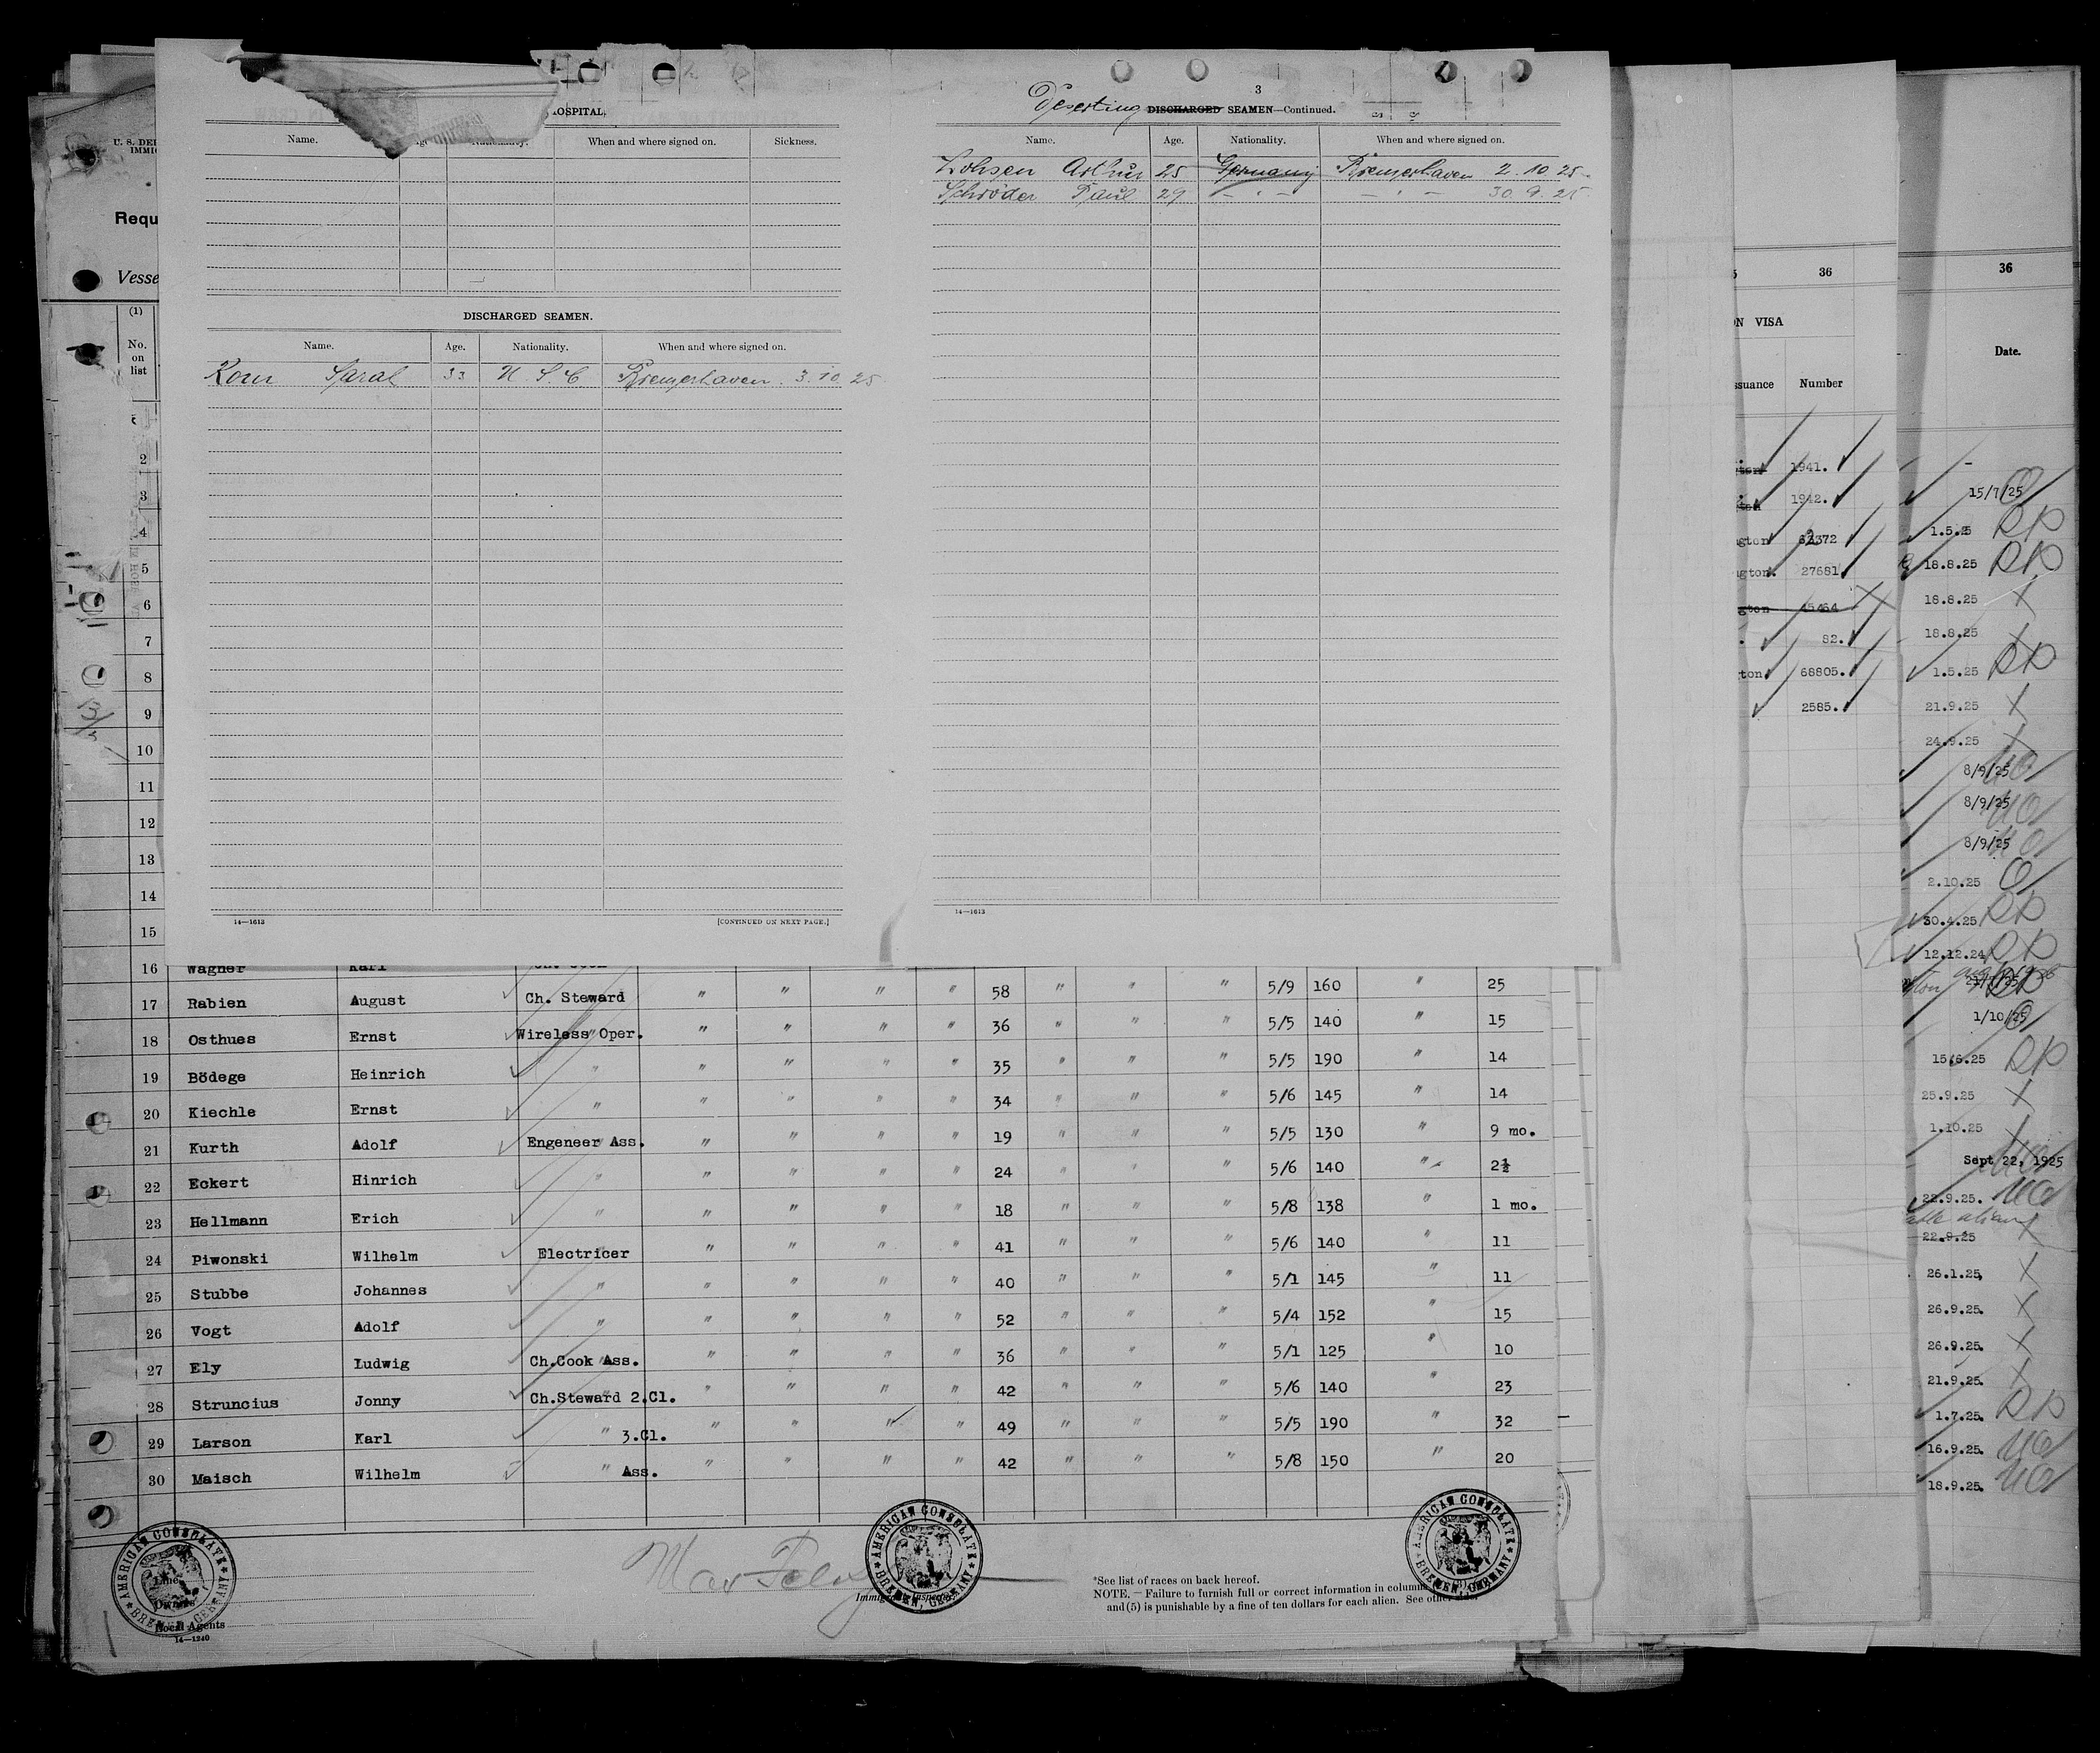 HOSPITAL
Name. Nationality. When and where signed on. Sickness.
DISCHARGED SEAMEN.
Name. Age. Nationality. When and where signed on.
33 U. S. C Bremerhaven. 3. 10. 25
14—1613 [CONTINUED ON NEXT PAGE.]
3
Deserting DISCHARGED SEAMEN—Continued.
Name. Age. Nationality. When and where signed on.
Arthur 25 Germany Bremerhaven 2. 10 25.
Schröder Paul 29 – " – – " – 30. 9. 25.
14—1613
U. S. DE
IMMI
Requ
Vesse
(1)
No.
on
list
2
3
4
5
6
7
8
9
10
11
12
13
14
15
16 Wagner Karl
17 Rabien August Ch. Steward " " " " 58 " " " 5/9 160 " 25
18 Osthues Ernst Wireless Oper. " " " " 36 " " " 5/5 140 " 15
19 Bödege Heinrich " " " " " 35 " " " 5/5 190 " 14
20 Kiechle Ernst " " " " " 34 " " " 5/6 145 " 14
21 Kurth Adolf Engeneer Ass. " " " " 19 " " " 5/5 130 " 9 mo.
22 Eckert Hinrich " " " " " 24 " " " 5/6 140 " 2½
23 Hellmann Erich " " " " " 18 " " " 5/8 138 " 1 mo.
24 Piwonski Wilhelm Electricer " " " " 41 " " " 5/6 140 " 11
25 Stubbe Johannes " " " " " 40 " " " 5/1 145 " 11
26 Vogt Adolf " " " " " 52 " " " 5/4 152 " 15
27 Ely Ludwig Ch.Cook Ass. " " " " 36 " " " 5/1 125 " 10
28 Struncius Jonny Ch.Steward 2.Cl. " " " " 42 " " " 5/6 140 " 23
29 Larson Karl " 3.Cl. " " " " 49 " " " 5/5 190 " 32
30 Maisch Wilhelm " Ass. " " " " 42 " " " 5/8 150 " 20
AMERICAN CONSULATE BREMEN, GERMANY
Line
Owners
Local Agents
14—1240
AMERICAN CONSULATE BREMEN, GERMANY
Immigrant Inspector
AMERICAN CONSULATE BREMEN, GERMANY
*See list of races on back hereof.
NOTE.—Failure to furnish full or correct information in columns
and (5) is punishable by a fine of ten dollars for each alien. See other side.
36
N VISA
suance Number
gton 1941.
1942.
gton 62372
gton. 27681
gton 45464
82.
ton 68805.
2585.
36
Date.
-
15/7/25
1.5.25
18.8.25
18.8.25
18.8.25
1.5.25
21.9.25
24.9.25
8/9/25
8/9/25
8/9/25
2.10.25
30.4.25
12.12.24
1/10/25
15.6.25
25.9.25
1.10.25
Sept 22, 1925
22.9.25.
22.9.25
26.1.25.
26.9.25.
26.9.25.
21.9.25.
1.7.25.
16.9.25.
18.9.25.